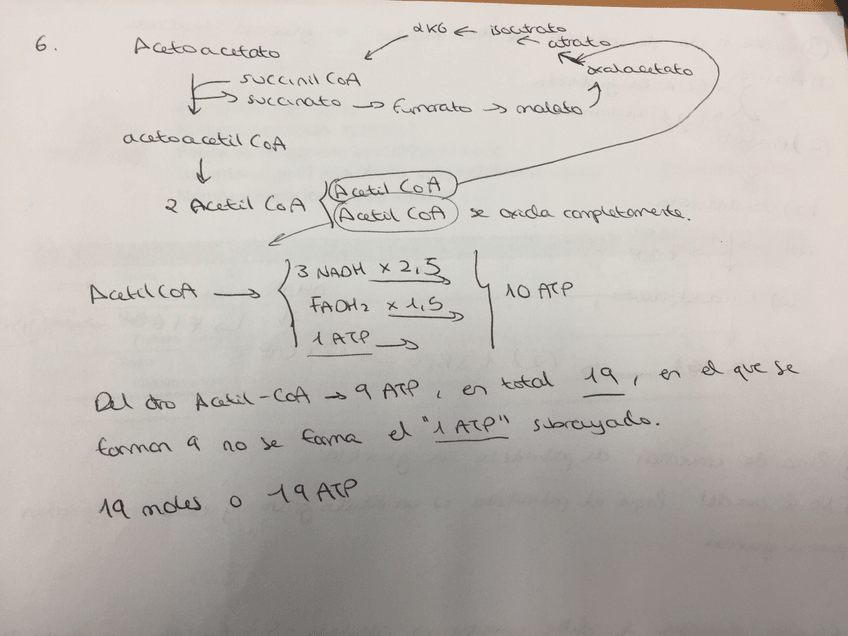 6. Acetoacetato αKG ← isocitrato ← citrato
oxalacetato
succinil CoA
succinato → fumarato → malato
acetoacetil CoA
2 Acetil CoA { Acetil CoA
Acetil CoA se oxida completamente.
Acetil CoA → { 3 NADH x 2,5 } 10 ATP
FADH2 x 1,5
1 ATP →
Del otro Acetil-CoA → 9 ATP, en total 19, en el que se
forman 9 no se forma el "1 ATP" subrayado.
19 moles o 19 ATP